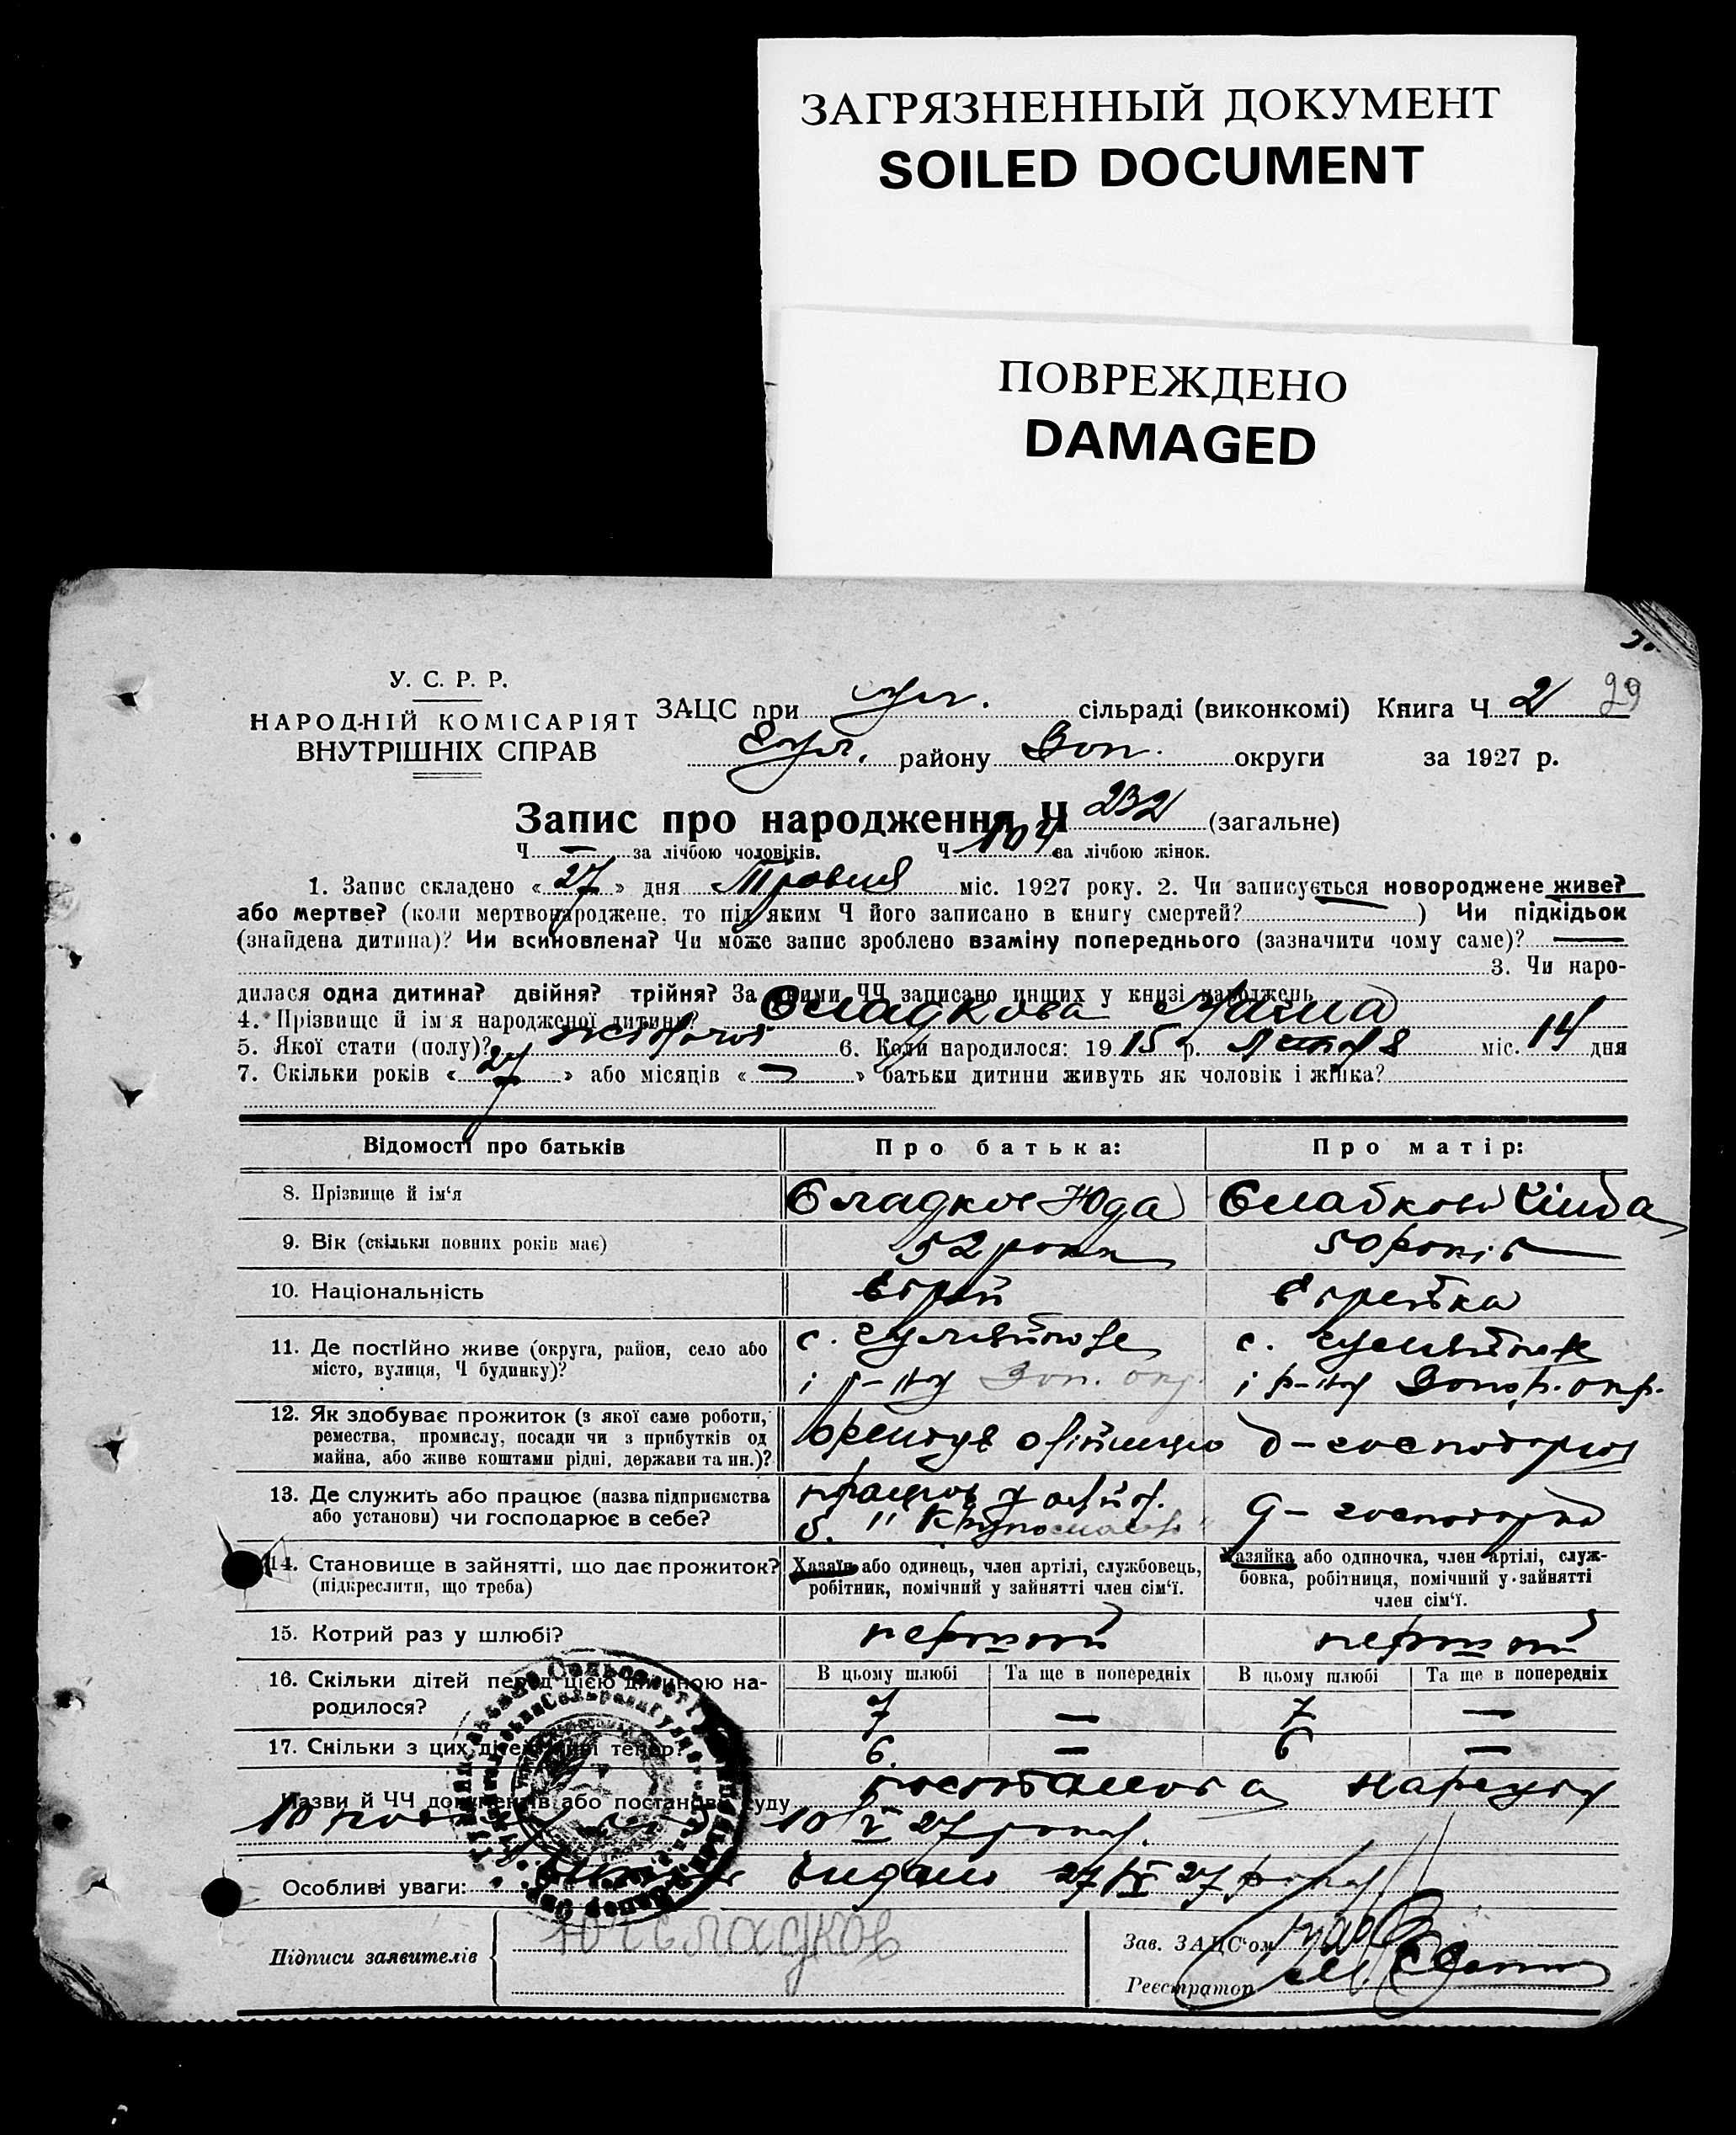 ЗАГРЯЗНЕННЫЙ ДОКУМЕНТ
SOILED DOCUMENT
ПОВРЕЖДЕНО
DAMAGED
У. С. Р. Р.
НАРОДНІЙ КОМІСАРІЯТ
ВНУТРІШНІХ СПРАВ
ЗАЦС при сільраді (виконкомі) Книга Ч 2 29
району Зап. округи за 1927 р.
Запис про народження Ч 232 (загальне)
Ч — за лічбою чоловіків. Ч 104 за лічбою жінок.
1. Запис складено « 27 » дня Травня міс. 1927 року. 2. Чи записується новороджене живе?
або мертве? (коли мертвонароджене, то під яким Ч його записано в книгу смертей? ) Чи підкідьок
(знайдена дитина)? Чи всиновлена? Чи може запис зроблено взаміну попереднього (зазначити чому саме)? —
3. Чи наро-
дилася одна дитина? двійня? трійня? За якими ЧЧ записано инших у книзі народжень
4. Прізвище й ім'я народженої дитини? Сладкова
5. Якої стати (полу)? жіночої 6. Коли народилося: 19 15 р. міс. 14 дня
7. Скільки років « 27 » або місяців « — » батьки дитини живуть як чоловік і жінка?
Відомості про батьків Про батька: Про матір:
8. Прізвище й ім'я Сладков Юда Сладкова
9. Вік (скільки повних років має) 52 роки 50 років
10. Національність Еврей Еврейка
11. Де постійно живе (округа, район, село або
місто, вулиця, Ч будинку)?
с. Гуляйполе с. Гуляйполе
і р-ну Зап. окр. і р-ну Запор. окр.
12. Як здобуває прожиток (з якої саме роботи,
ремества, промислу, посади чи з прибутків од
майна, або живе коштами рідні, держави та ин.)?
орендує олійницю д-господарка
13. Де служить або працює (назва підприємства
або установи) чи господарює в себе?
працює у д-господарка
14. Становище в зайнятті, що дає прожиток?
(підкреслити, що треба)
Хазяїн або одинець, член артілі, службовець,
робітник, помічний у зайнятті член сім'ї.
Хазяйка або одиночка, член артілі, служ-
бовка, робітниця, помічний у зайнятті
член сім'ї.
15. Котрий раз у шлюбі? перший перший
16. Скільки дітей перед цією дитиною на-
родилося?
В цьому шлюбі Та ще в попередніх В цьому шлюбі Та ще в попередніх
7 — 7 —
17. Скільки з цих дітей живі тепер? 6 — 6 —
Назви й ЧЧ документів або постанови суду постанова нарсуду
10/V 27 року.
Особливі уваги: видано 27/V 27 року
Підписи заявителів Ю Сладков
Зав. ЗАЦС'ом
Реєстратор